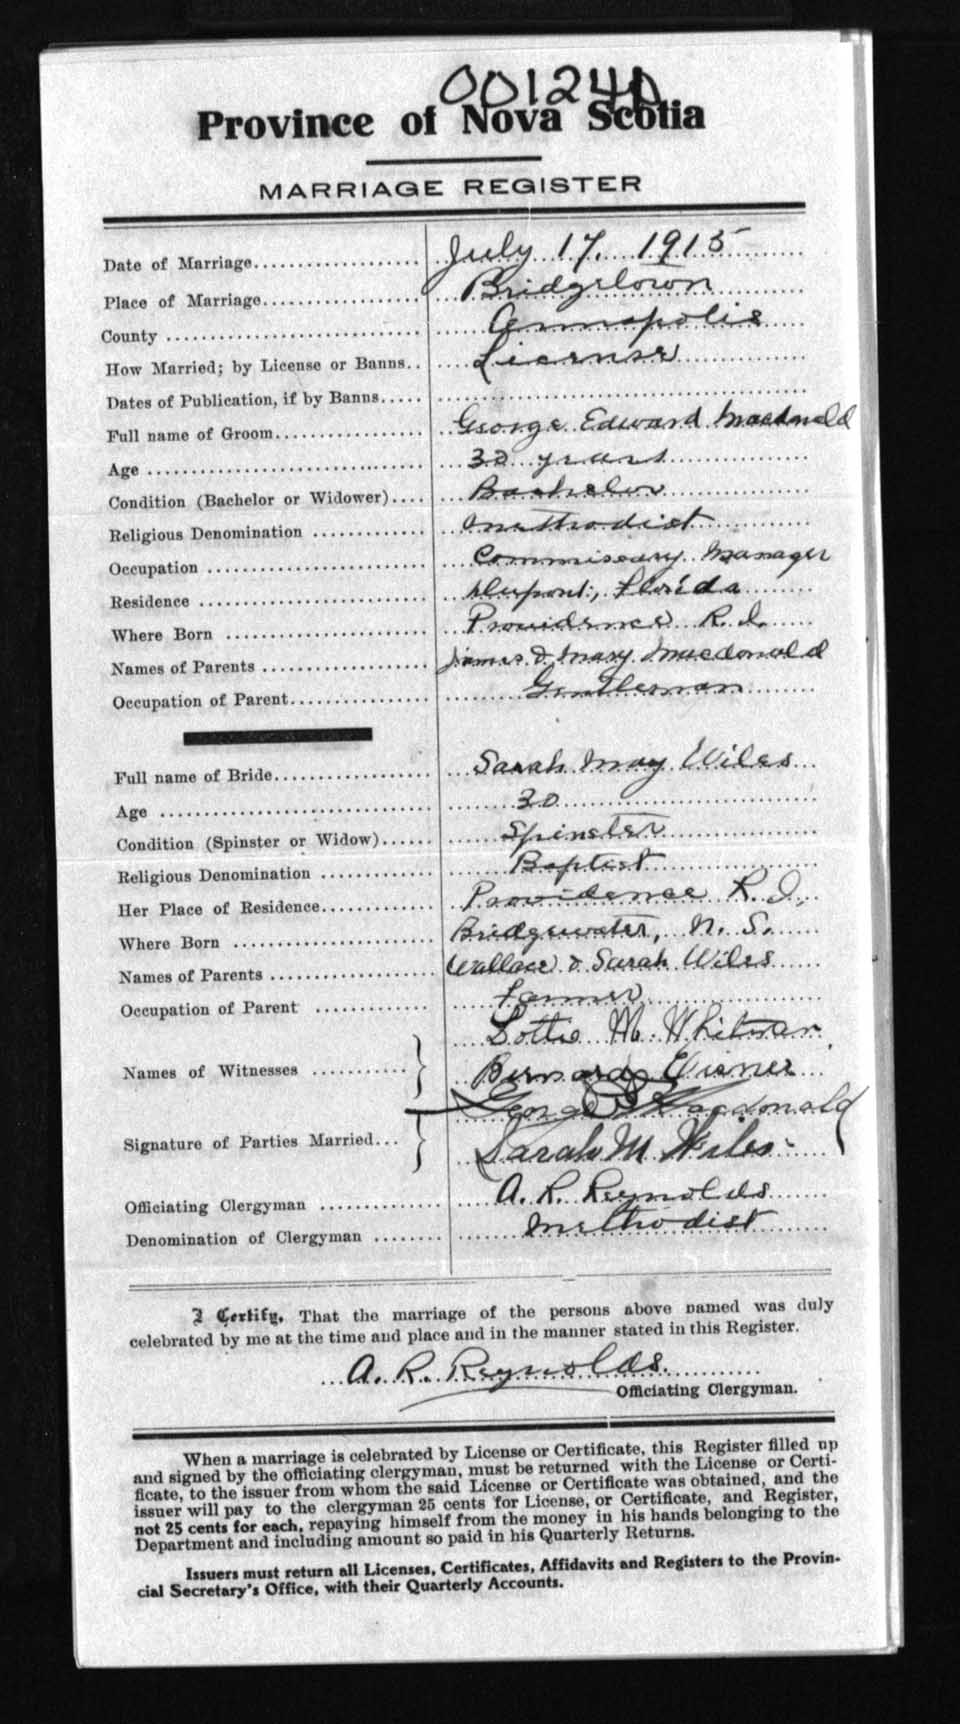 001240
Province of Nova Scotia
MARRIAGE REGISTER
Date of Marriage July 17. 1915
Place of Marriage Bridgetown
County Annapolis
How Married; by License or Banns License
Dates of Publication, if by Banns
Full name of Groom George Edward Macdonald
Age 30 years
Condition (Bachelor or Widower) Bachelor
Religious Denomination Methodist
Occupation Commissary Manager
Residence Dupont, Florida
Where Born Providence R. I.
Names of Parents James & Mary Macdonald
Occupation of Parent Gentleman
Full name of Bride Sarah May Wiles
Age 30
Condition (Spinster or Widow) Spinster
Religious Denomination Baptist
Her Place of Residence Providence R. I.
Where Born Bridgewater, N. S.
Names of Parents Wallace & Sarah Wiles
Occupation of Parent Farmer
Lottie M. Whitman
Names of Witnesses } Bernard
George E Macdonald
Signature of Parties Married } Sarah M Wiles
Officiating Clergyman A. R. Reynolds
Denomination of Clergyman Methodist
I Certify, That the marriage of the persons above named was duly
celebrated by me at the time and place and in the manner stated in this Register.
A. R. Reynolds.
Officiating Clergyman.
When a marriage is celebrated by License or Certificate, this Register filled up
and signed by the officiating clergyman, must be returned with the License or Certi-
ficate, to the issuer from whom the said License or Certificate was obtained, and the
issuer will pay to the clergyman 25 cents for License, or Certificate, and Register,
not 25 cents for each, repaying himself from the money in his hands belonging to the
Department and including amount so paid in his Quarterly Returns.
Issuers must return all Licenses, Certificates, Affidavits and Registers to the Provin-
cial Secretary's Office, with their Quarterly Accounts.